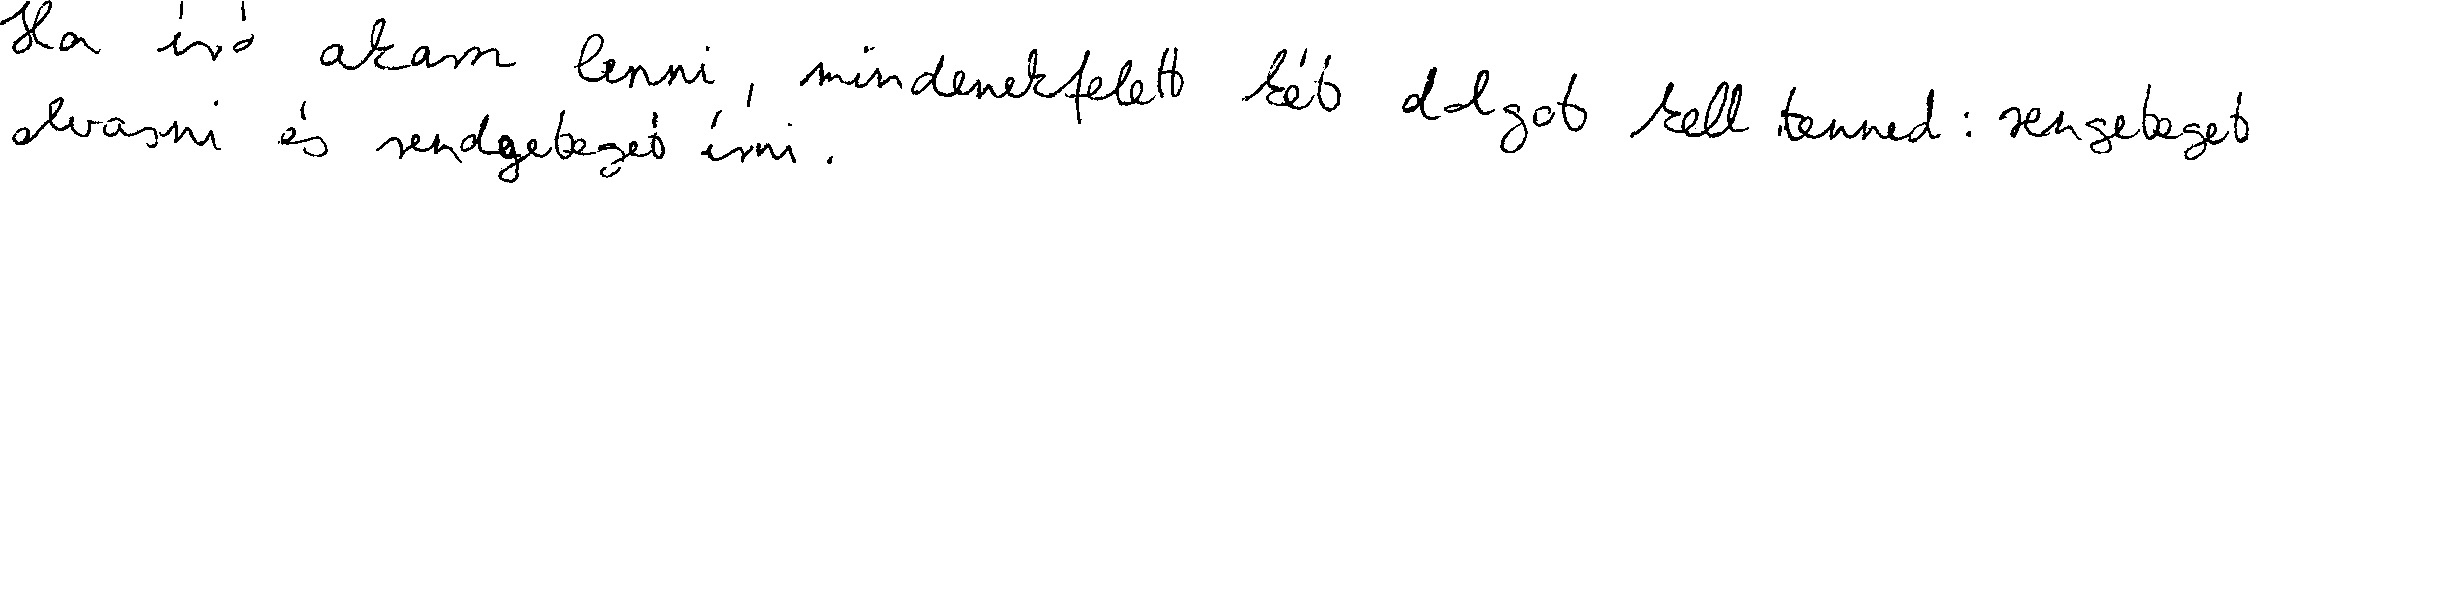 Ha író akarsz lenni, mindenekfelett két dolgot kell tenned: rengeteget
olvasni és rendgeteget írni.